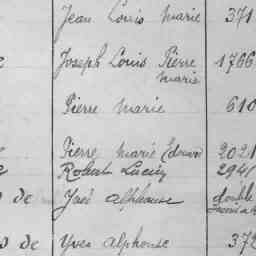 Jean Louis Marie 371
Joseph Louis Pierre 1766
Marie
Pierre Marie 610
Pierre Marie Edouard 2021
Robert Lucien 294
de José Alphonse double
de Yves Alphonse 372